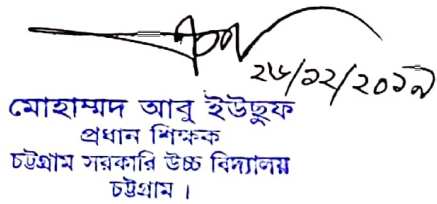 ২৬/১২/২০১৯
মোহাম্মদ আবু ইউছুফ
প্রধান শিক্ষক
চট্টগ্রাম সরকারি উচ্চ বিদ্যালয়
চট্টগ্রাম ।